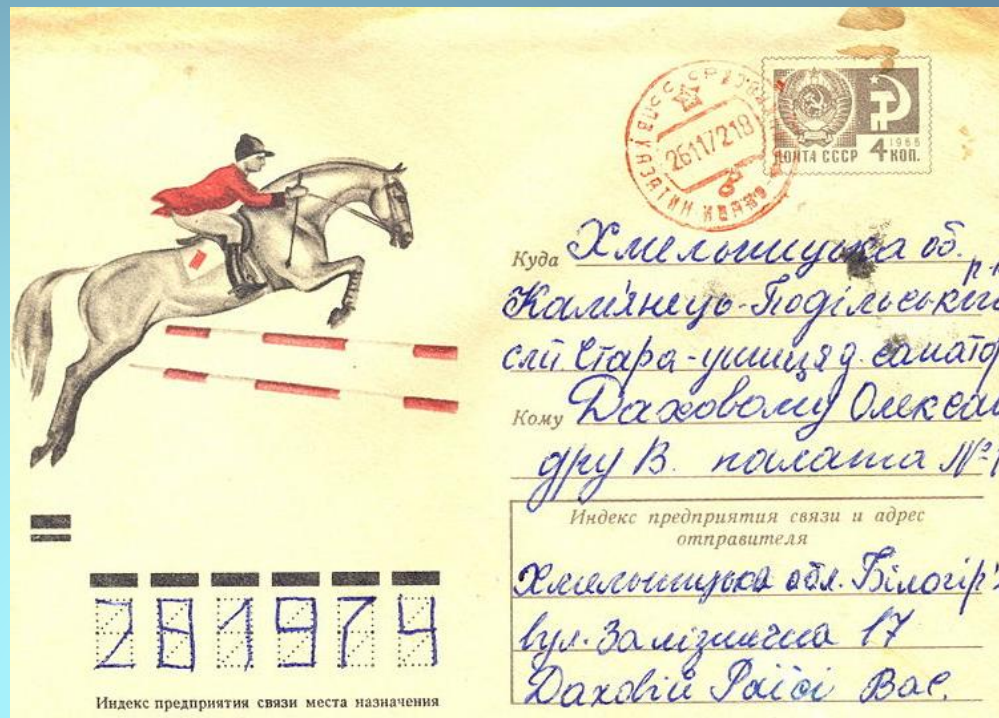 ПОЧТА СССР 4 КОП.
1966
26117218
Куда Хмельницька об.
р-н
Кам'янець-Подільський
смт. Стара-ушиця д. санатор
Кому Даховому Олексан
дру В. палата №
Индекс предприятия связи и адрес
отправителя
Хмельницька обл. Білогір'
вул. Залізнична 17
Даховій Раїсі Вас.
281974
Индекс предприятия связи места назначения